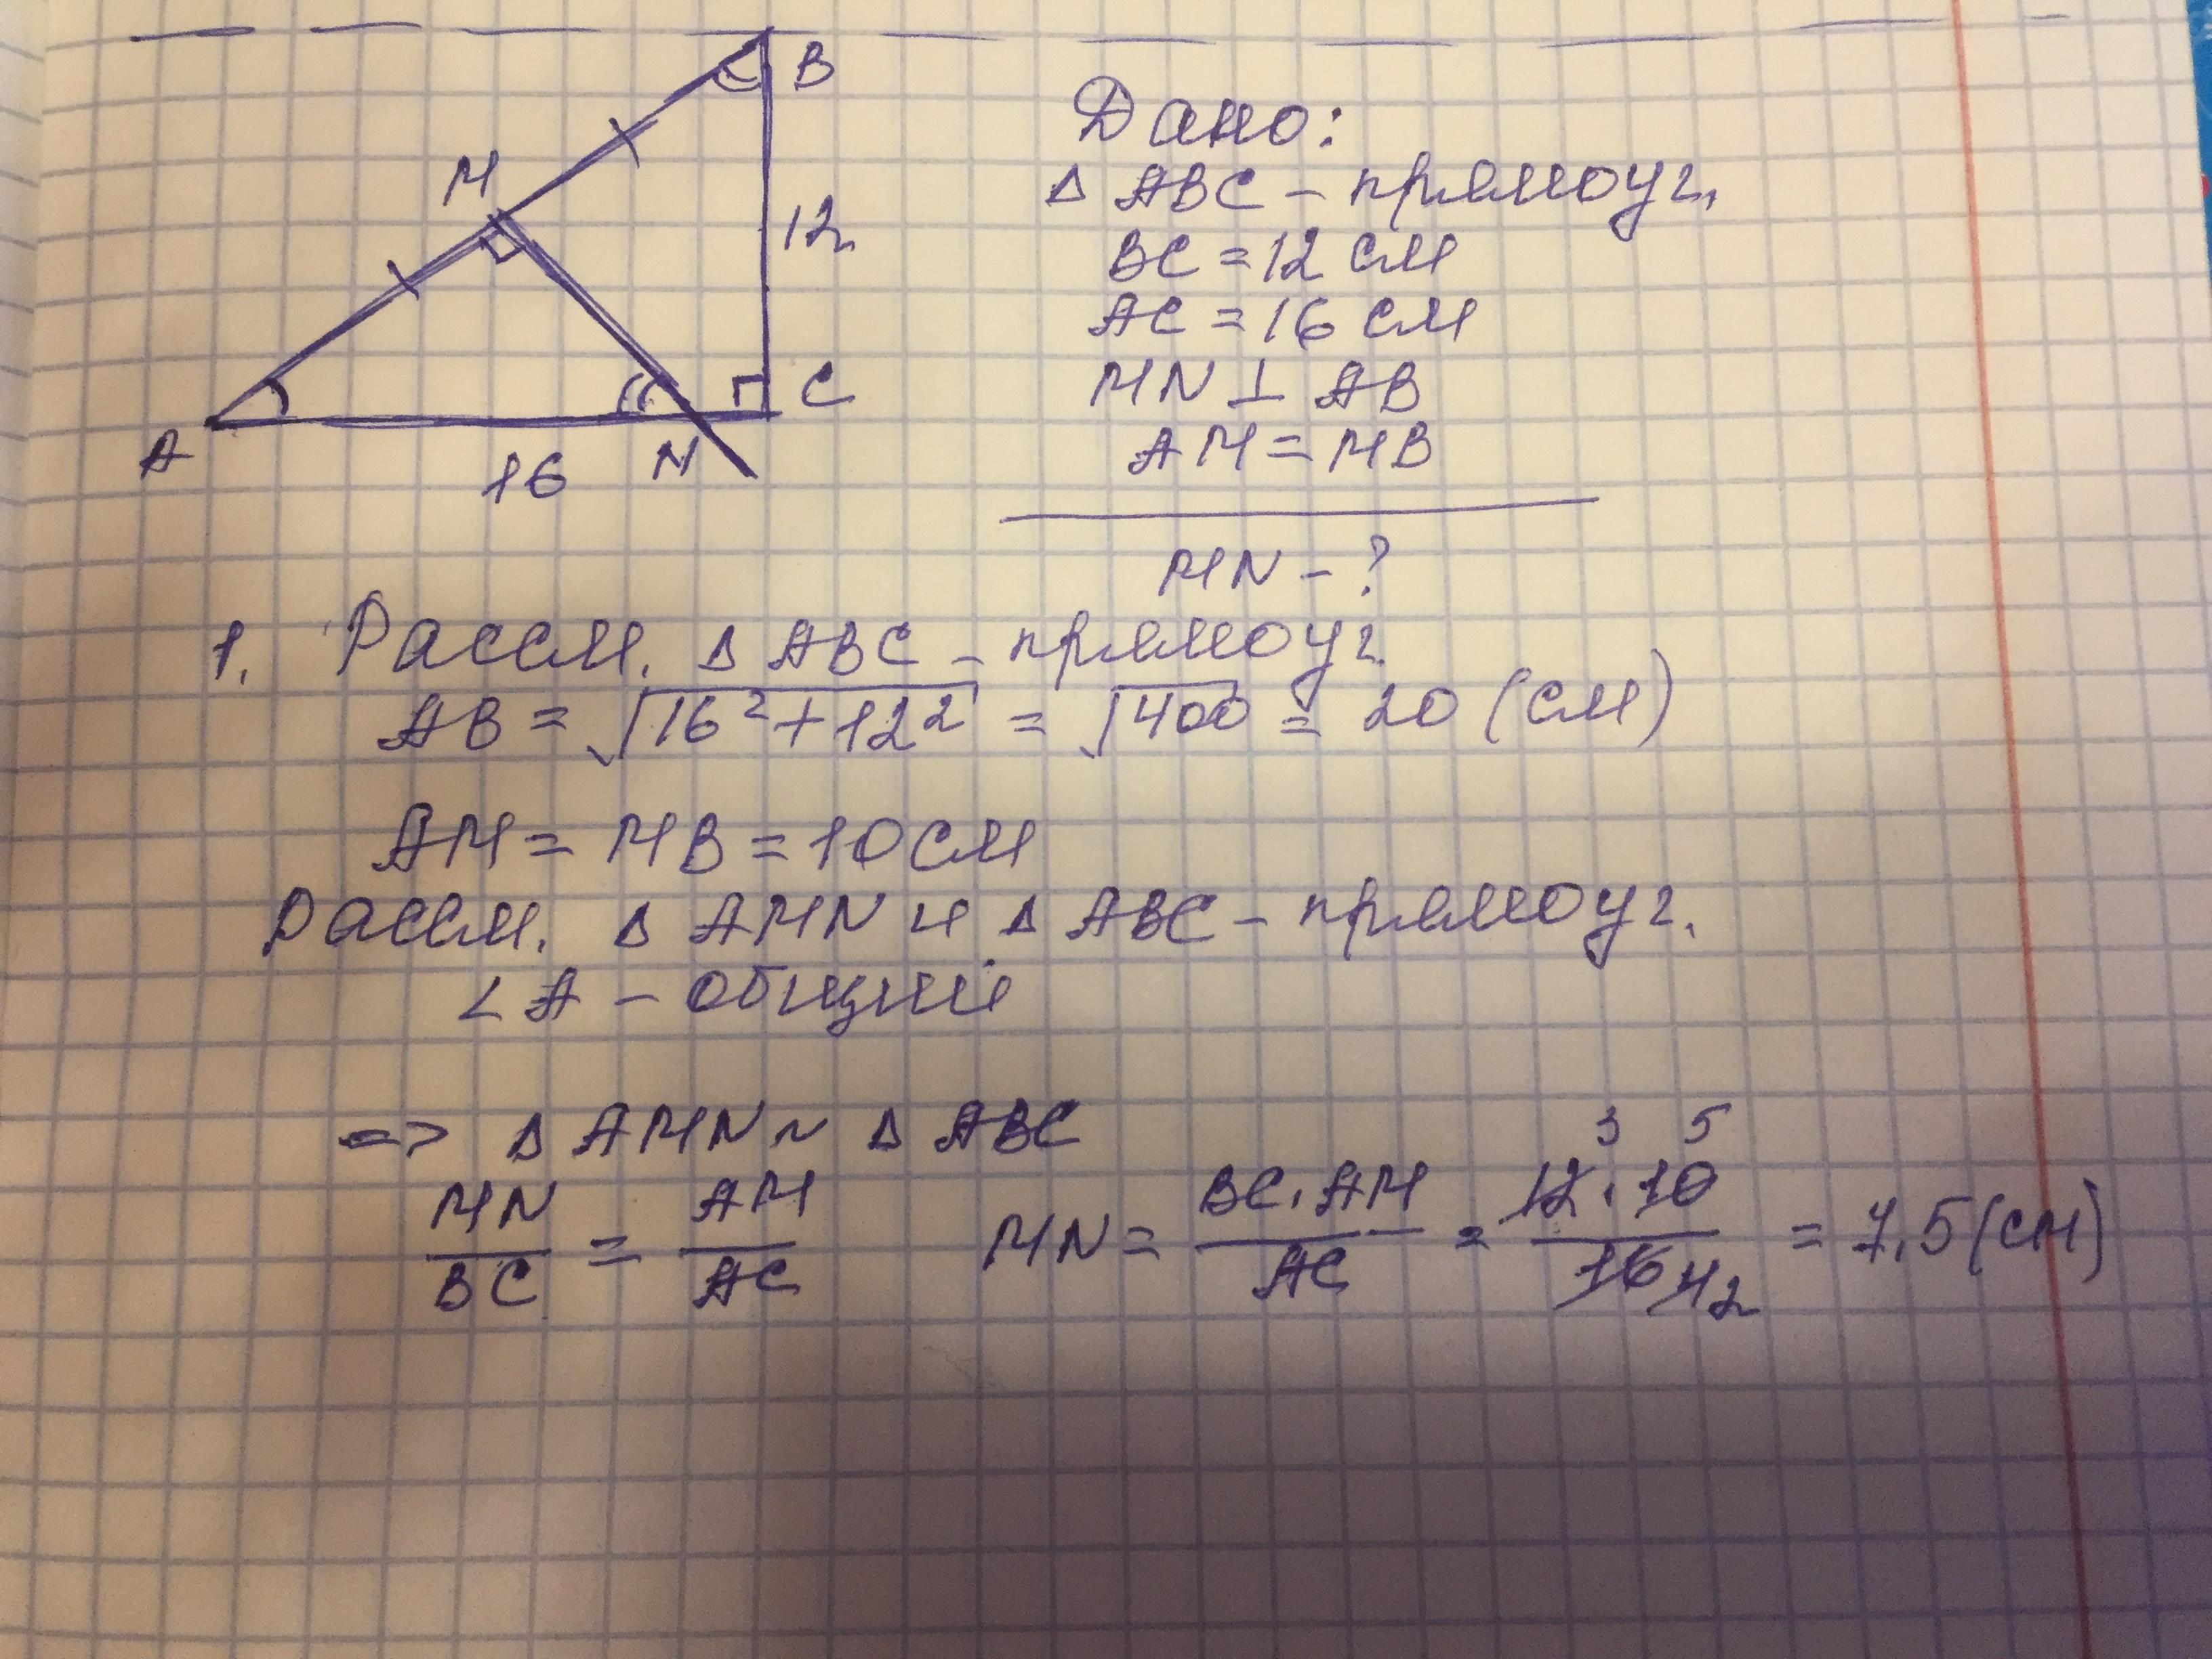 B
M
12
C
A
16
N
Дано:
Δ ABC – прямоуг.
BC = 12 см
AC = 16 см
MN ⊥ AB
AM = MB
MN – ?
1. Рассм. Δ ABC – прямоуг.
AB = √16² + 12² = √400 = 20 (см)
AM = MB = 10 см
Рассм. Δ AMN и Δ ABC – прямоуг.
∠A – общий
=> Δ AMN ~ Δ ABC
MN/BC = AM/AC MN = BC · AM/AC = 12 · 10/16 = 7,5 (см)
3 5
4 2